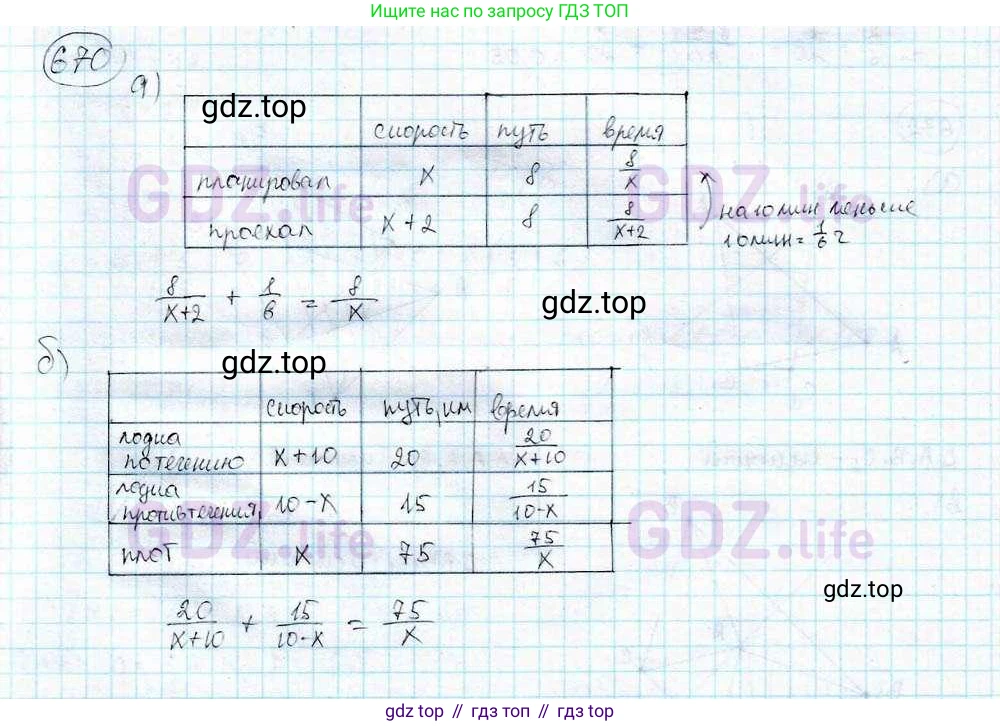 Ищите ответы по запросу ГДЗ ТОП
670
а)
gdz.top
скорость путь время
планировал x 8 8/x
проехал x+2 8 8/(x+2)
на 10 мин меньше
10 мин = 1/6 ч
8/(x+2) + 1/6 = 8/x
gdz.top
б)
gdz.top
скорость путь, км время
лодка
по течению x+10 20 20/(x+10)
лодка
против течения 10-x 15 15/(10-x)
плот x 75 75/x
20/(x+10) + 15/(10-x) = 75/x
gdz.top
GDZ.life
GDZ.life
GDZ.life
GDZ.life
gdz top // гдз топ // gdz top